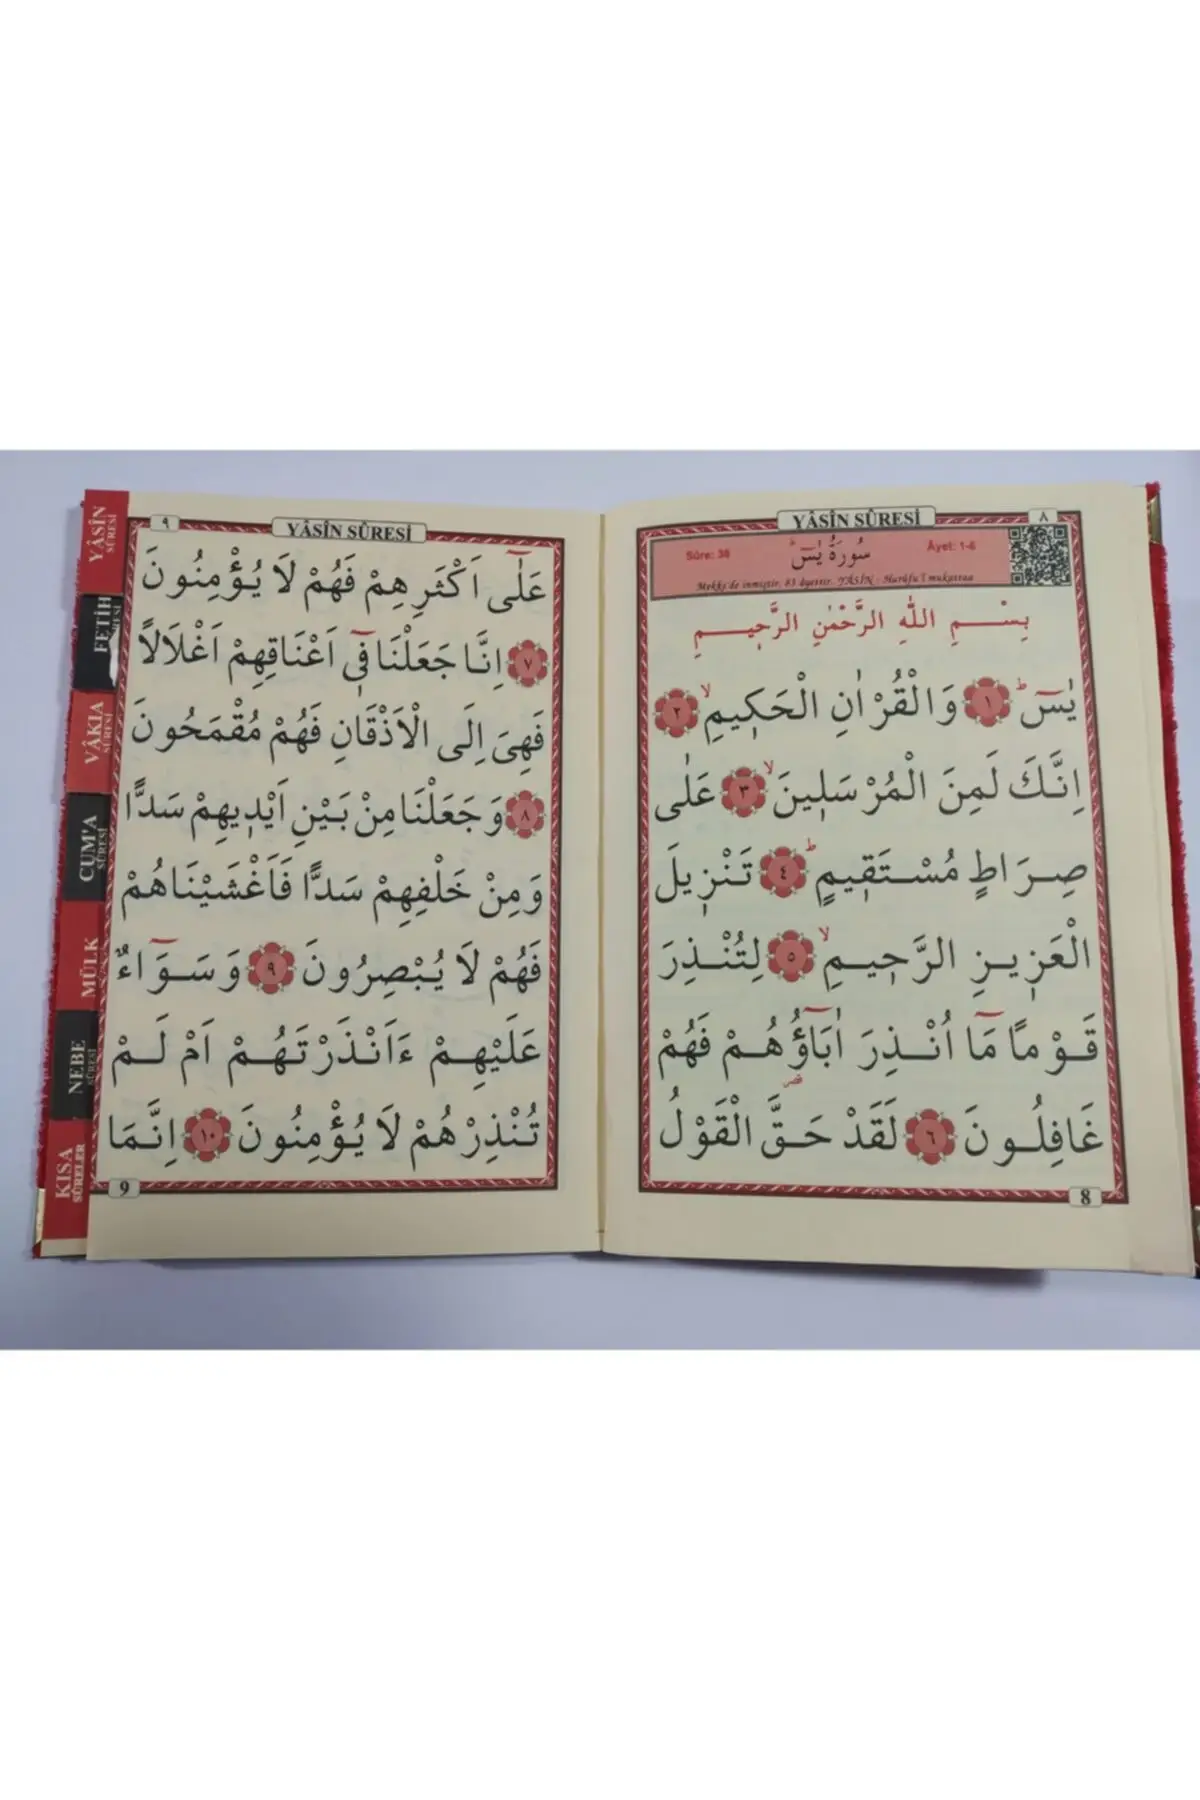 YÂSÎN SÛRESİ
٨
Sûre: 36
سُورَةُ يٰسٓ
Âyet: 1-6
Mekke'de inmiştir. 83 âyettir. YÂSÎN : Hurûfu'l mukattaa
بِسْــــمِ اللّٰهِ الرَّحْمٰنِ الرَّح۪يــــمِ
يٰسٓ ۜ ١ وَالْقُرْاٰنِ الْحَك۪يمِۙ ٢
اِنَّكَ لَمِنَ الْمُرْسَل۪ينَۙ ٣ عَلٰى
صِرَاطٍ مُسْتَق۪يمٍۜ ٤ تَنْز۪يلَ
الْعَز۪يزِ الرَّح۪يمِۙ ٥ لِتُنْذِرَ
قَوْمًا مَٓا اُنْذِرَ اٰبَٓاؤُ۬هُمْ فَهُمْ
غَافِلُونَ ٦ لَقَدْ حَقَّ الْقَوْلُ
8
YÂSÎN SÛRESİ
٩
عَلٰٓى اَكْثَرِهِمْ فَهُمْ لَا يُؤْمِنُونَ
٧ اِنَّا جَعَلْنَا ف۪ٓي اَعْنَاقِهِمْ اَغْلَالًا
فَهِيَ اِلَى الْاَذْقَانِ فَهُمْ مُقْمَحُونَ
٨ وَجَعَلْنَا مِنْ بَيْنِ اَيْد۪يهِمْ سَدًّا
وَمِنْ خَلْفِهِمْ سَدًّا فَاَغْشَيْنَاهُمْ
فَهُمْ لَا يُبْصِرُونَ ٩ وَسَوَٓاءٌ
عَلَيْهِمْ ءَاَنْذَرْتَهُمْ اَمْ لَمْ
تُنْذِرْهُمْ لَا يُؤْمِنُونَ ١٠ اِنَّمَا
9
YÂSÎN SÛRESİ
FETİH
VÂKIA SÛRESİ
CUM'A SÛRESİ
MÜLK
NEBE SÛRESİ
KISA SÛRELER